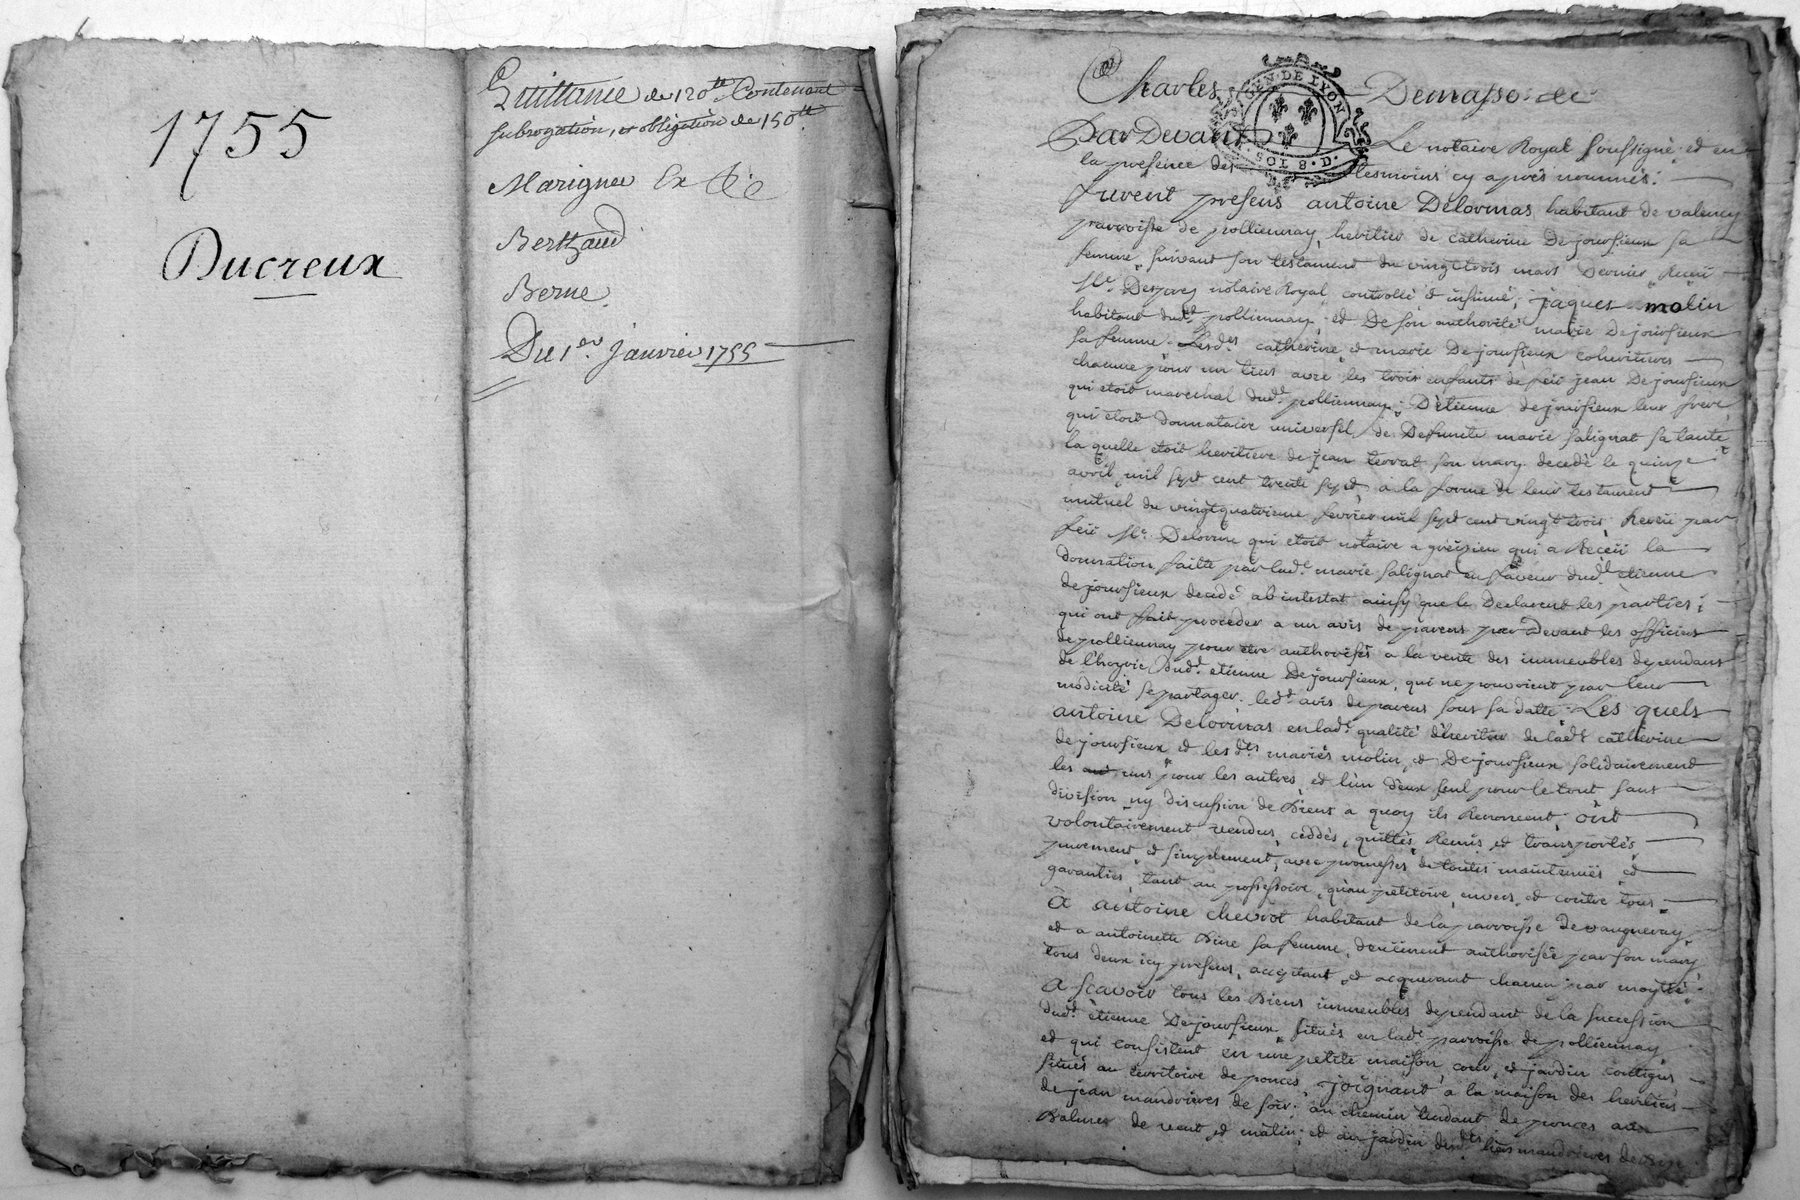 1755
Ducreux
Quittance de 120tt Contenant
subrogation, et obligation de 150tt
Marigner
Berthaud
Berne
Du 1er janvier 1755
Charles Demasso
GEN DE LYON
SOLS 8 D.
Par Devant Le notaire Royal soussigné et en
la presence des tesmoins cy après nommés.
furent presens antoine Delormas habitant de valency
parroisse de pollionnay, heritier de catherine Dejoursieux sa
femme, suivant son testament du vingt trois mars Dernier Receu
Me. notaire Royal, controllé et insinué, jaques molin
habitant dudt. pollionnay, et De son authorité marie Dejoursieux
sa femme. Lesdes. catherine et marie Dejoursieux coheritieres
chacune pour un tiers avec les trois enfants de feu jean Dejoursieux
qui etoit marechal dudt. pollionnay, D'étienne dejoursieux leur frere,
qui etoit donnataire universel de Defunte marie salignat sa tante
la quelle etoit heritiere de jean terrat son mary decedé le quinze
avril mil sept cent trente sept, a la forme de leur testament
mutuel du vingtquatrieme fevrier mil sept cent vingt trois Receu par
feu Me. Delorme qui etoit notaire a greizieu qui a Receu la
donnation faitte par ladt. marie salignat en faveur dudt. etienne
dejoursieux decedé ab intestat ainsy que le Declarent les parties;
qui ont fait proceder a un avis de parens par Devant les officiers
de pollionnay pour etre authorisés a la vente des immeubles dependans
de l'hoyrie dudt. etienne Dejoursieux, qui ne pouvoient par leur
modicité se partager. ledt. avis de parens sous sa datte. Les quels
antoine Delormas en ladt. qualité d'heritier de ladt. catherine
dejoursieux et lesdts. mariés molin, et Dejoursieux solidairement
les uns pour les autres, et l'un d'eux seul pour le tout sans
division ny discussion de Biens a quoy ils Renoncent, ont
volontairement vendus, ceddés, quittés, Remis et transportés
purement et simplement, avec promesses de toutes maintenues et
garanties, tant au possessoire, qu'au petitoire, envers et contre tous
a antoine chevrot habitant de la parroisse de vaugneray
et a antoinette Bine sa femme, deuement authorisée par son mary
tous deux icy presens, acceptant et acquerant chacun par moytié
a scavoir tous les Biens immeubles dependant de la succession
dudt. etienne Dejoursieux situés en ladt. parroisse de pollionnay
et qui consistent en une petite maison, cour, et jardin contigus
situés au territoire de ponces, joignant a la maison des heritiers
de jean mandrieres de soir. au chemin tendant de ponces aux
Balmes de vent et matin, et au jardin desdts. hoirs mandrieres de bize